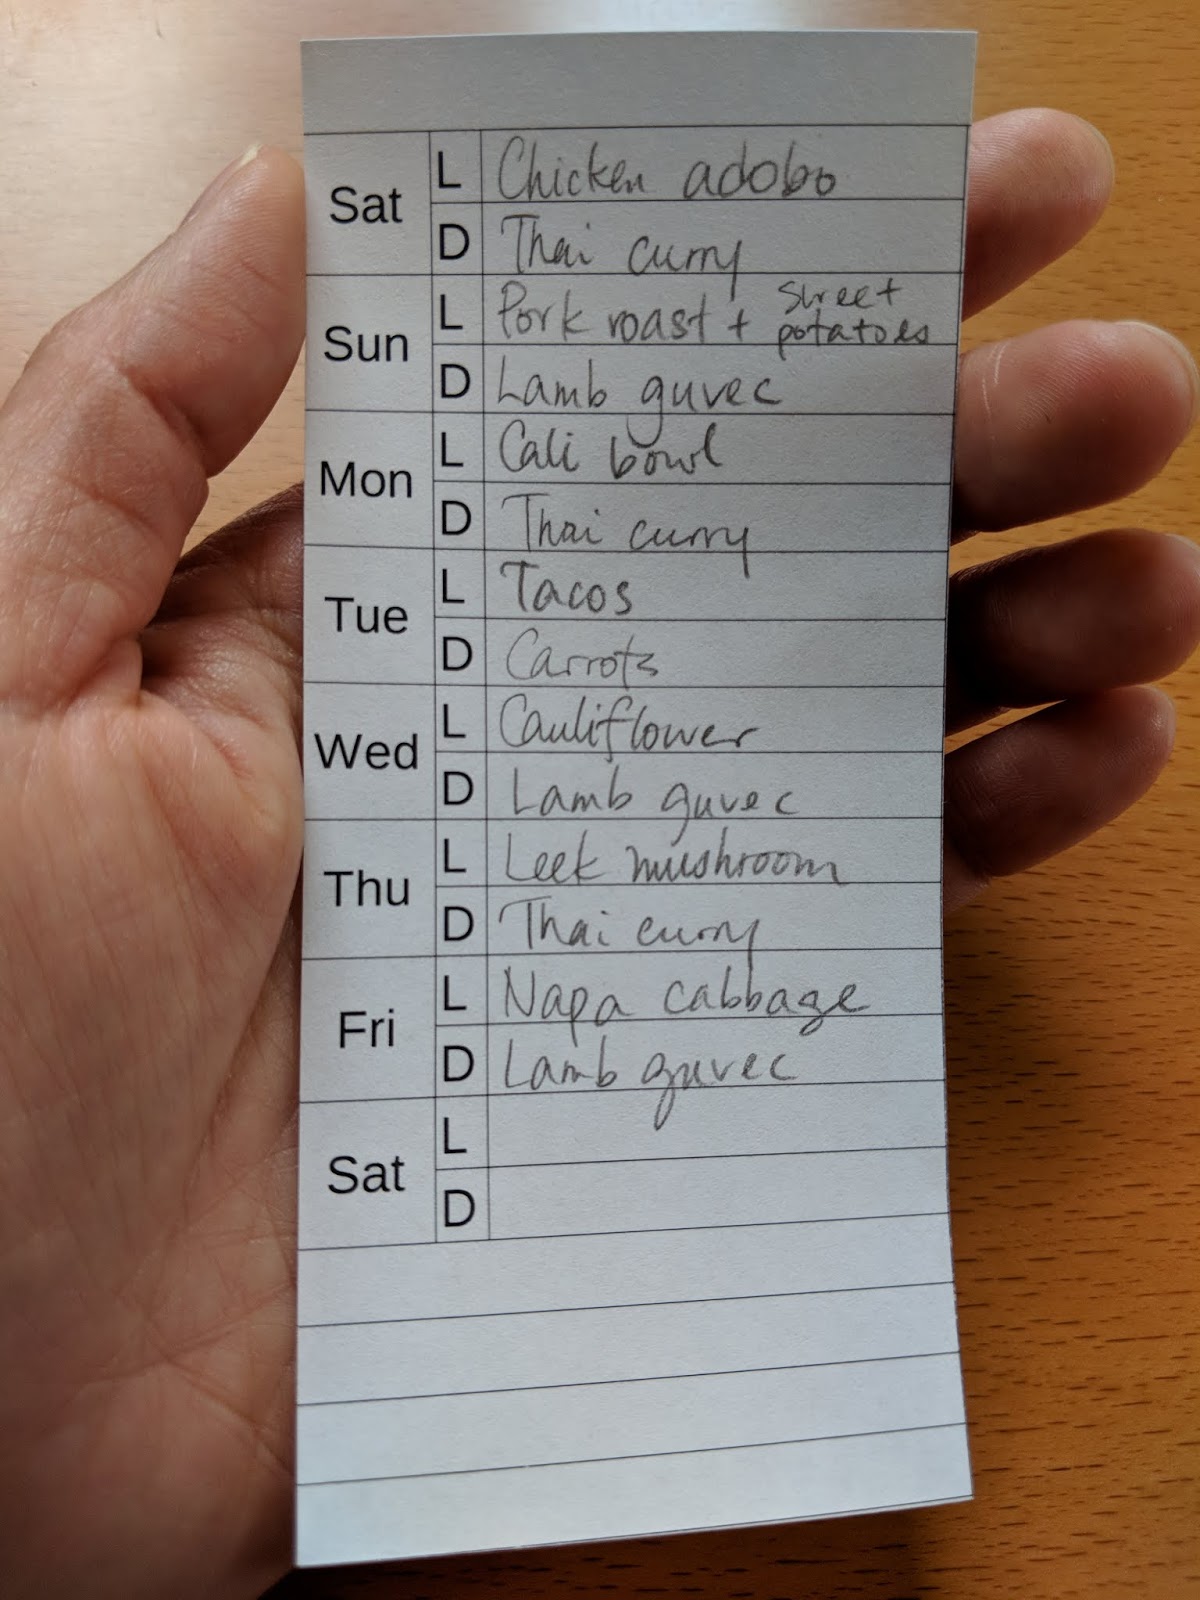 Sat L Chicken adobo
D Thai curry
Sun L Pork roast + sweet potatoes
D Lamb guvec
Mon L Cali bowl
D Thai curry
Tue L Tacos
D Carrots
Wed L Cauliflower
D Lamb guvec
Thu L Leek mushroom
D Thai curry
Fri L Napa cabbage
D Lamb guvec
Sat L
D